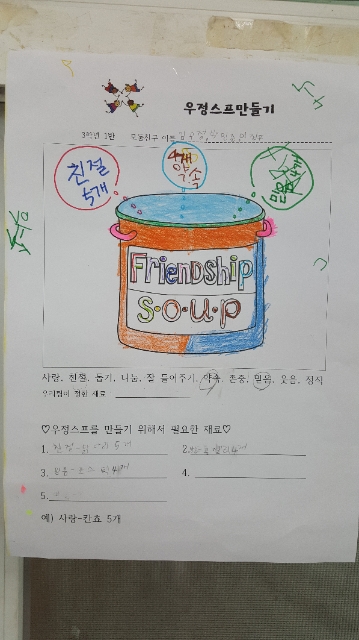 우정스프만들기
3학년 1반 모둠친구 이름
친절
5개
4개
약속
믿음 4개
Friendship
S·O·U·P
사랑, 친절, 돕기, 나눔, 잘 들어주기, 약속, 존중, 믿음, 웃음, 정직
우리팀이 정한 재료
♡우정스프를 만들기 위해서 필요한 재료♡
1. 친절- 5개
2. 4개
3. 믿음- 4개
4.
5.
예) 사랑-칸쵸 5개